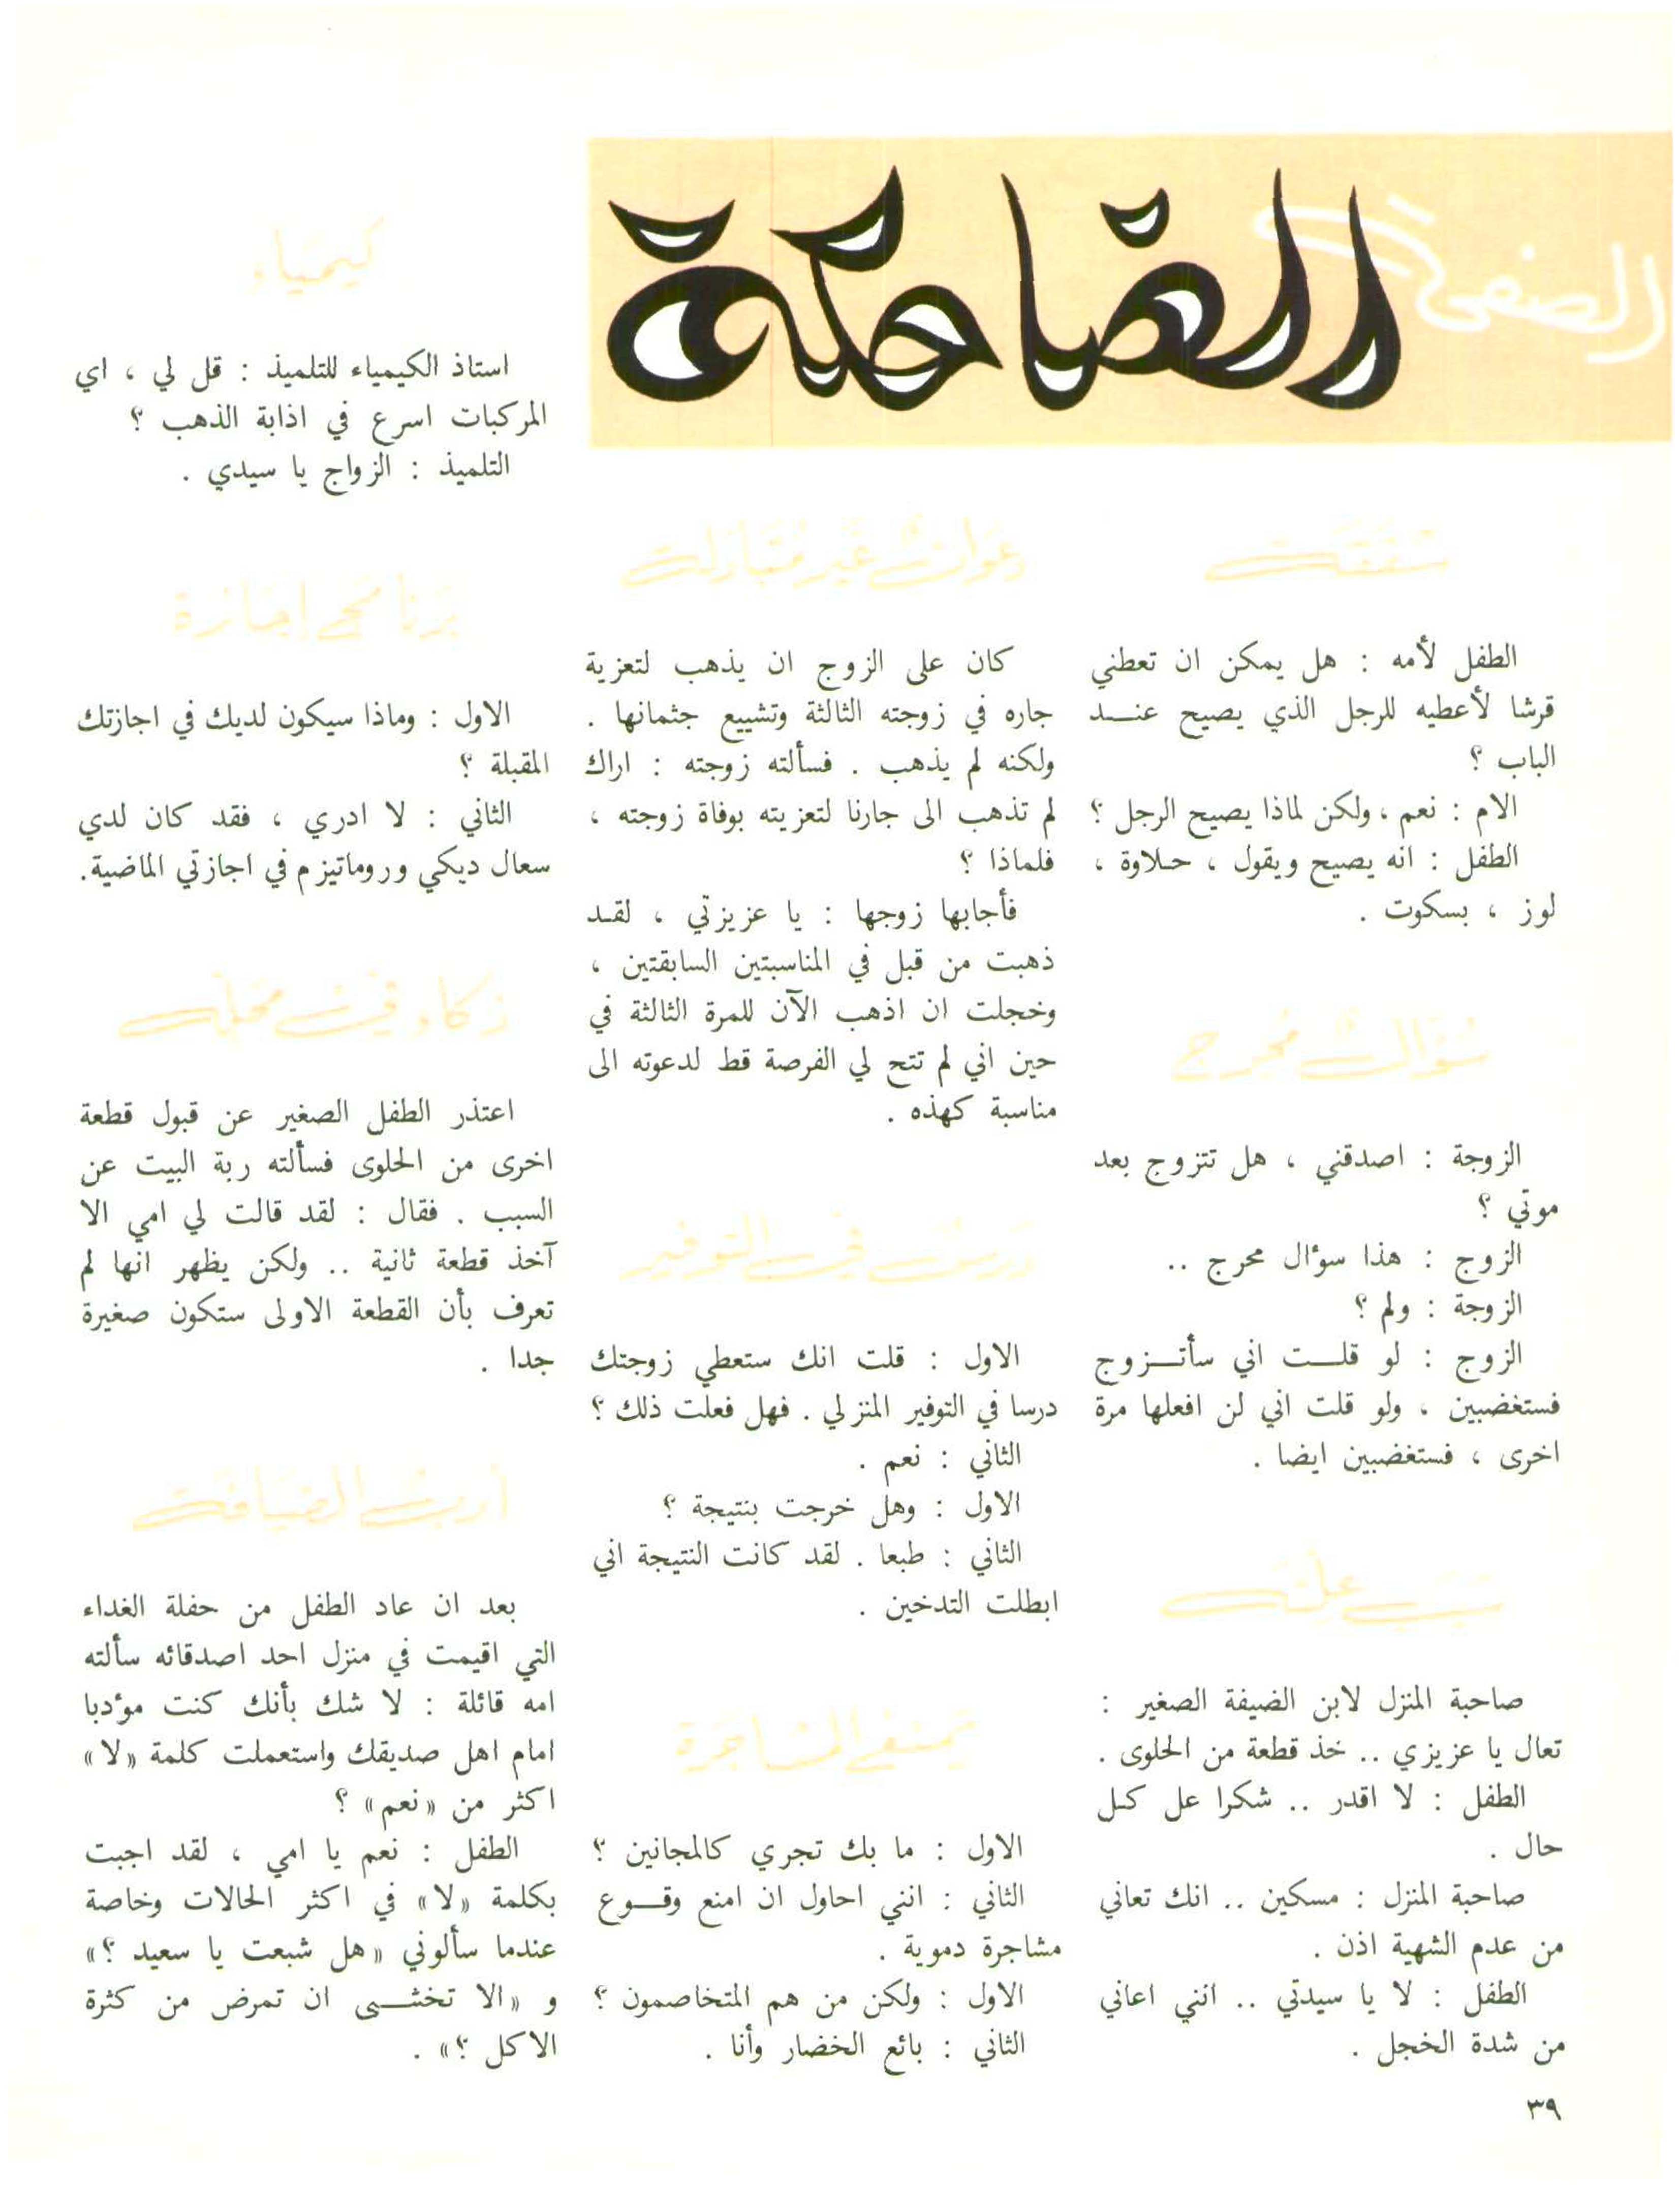 الصفحة الضاحكة
شفقة
الطفل لأمه : هل يمكن ان تعطني
قرشا لأعطيه للرجل الذي يصيح عنــد
الباب ؟
الام : نعم ، ولكن لماذا يصيح الرجل ؟
الطفل : انه يصيح ويقول ، حلاوة ،
لوز ، بسكوت .
سُؤال مُحرج
الزوجة : اصدقني ، هل تتزوج بعد
موتي ؟
الزوج : هذا سؤال محرج ..
الزوجة : ولم ؟
الزوج : لو قلــت اني سأتــزوج
فستغضبين ، ولو قلت اني لن افعلها مرة
اخرى ، فستغضبين ايضا .
سبب علته
صاحبة المنزل لابن الضيفة الصغير :
تعال يا عزيزي .. خذ قطعة من الحلوى .
الطفل : لا اقدر .. شكرا عل كل
حال .
صاحبة المنزل : مسكين .. انك تعاني
من عدم الشهية اذن .
الطفل : لا يا سيدتي .. انني اعاني
من شدة الخجل .
دعوات غير متبادلة
كان على الزوج ان يذهب لتعزية
جاره في زوجته الثالثة وتشييع جثمانها .
ولكنه لم يذهب . فسألته زوجته : اراك
لم تذهب الى جارنا لتعزيته بوفاة زوجته ،
فلماذا ؟
فأجابها زوجها : يا عزيزتي ، لقد
ذهبت من قبل في المناسبتين السابقتين ،
وخجلت ان اذهب الآن للمرة الثالثة في
حين اني لم تتح لي الفرصة قط لدعوته الى
مناسبة كهذه .
درس في التوفير
الاول : قلت انك ستعطي زوجتك
درسا في التوفير المنزلي . فهل فعلت ذلك ؟
الثاني : نعم .
الاول : وهل خرجت بنتيجة ؟
الثاني : طبعا . لقد كانت النتيجة اني
ابطلت التدخين .
يمنع المشاجرة
الاول : ما بك تجري كالمجانين ؟
الثاني : انني احاول ان امنع وقــوع
مشاجرة دموية .
الاول : ولكن من هم المتخاصمون ؟
الثاني : بائع الخضار وأنا .
كيمياء
استاذ الكيمياء للتلميذ : قل لي ، اي
المركبات اسرع في اذابة الذهب ؟
التلميذ : الزواج يا سيدي .
برنامج إجازة
الاول : وماذا سيكون لديك في اجازتك
المقبلة ؟
الثاني : لا ادري ، فقد كان لدي
سعال ديكي وروماتيزم في اجازتي الماضية.
ذكاء في محله
اعتذر الطفل الصغير عن قبول قطعة
اخرى من الحلوى فسألته ربة البيت عن
السبب . فقال : لقد قالت لي امي الا
آخذ قطعة ثانية .. ولكن يظهر انها لم
تعرف بأن القطعة الاولى ستكون صغيرة
جدا .
أدب الضيافة
بعد ان عاد الطفل من حفلة الغداء
التي اقيمت في منزل احد اصدقائه سألته
امه قائلة : لا شك بأنك كنت مؤدبا
امام اهل صديقك واستعملت كلمة «لا»
اكثر من «نعم» ؟
الطفل : نعم يا امي ، لقد اجبت
بكلمة «لا» في اكثر الحالات وخاصة
عندما سألوني «هل شبعت يا سعيد ؟»
و «الا تخشــى ان تمرض من كثرة
الاكل ؟» .
٣٩